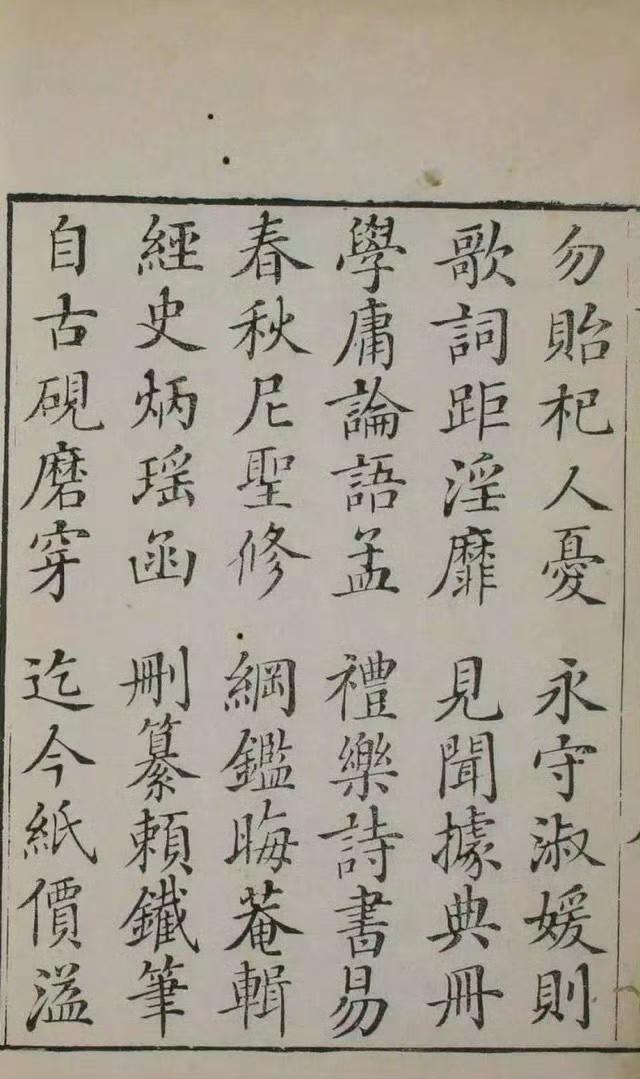 勿貽杞人憂 永守淑媛則
歌詞距淫靡 見聞據典冊
學庸論語孟 禮樂詩書易
春秋尼聖修 綱鑑晦菴輯
經史炳瑶函 刪纂賴鐵筆
自古硯磨穿 迄今紙價溢